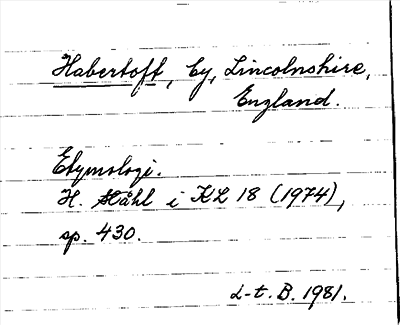 Habertoft, by, Lincolnshire,
England.
Etymologi.
H. Ståhl i KL 18 (1974),
sp. 430.
L-t. B. 1981.